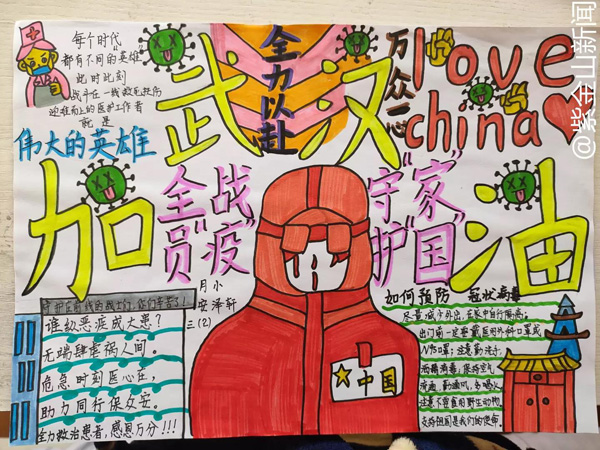 每个时代
都有不同的"英雄"
此时此刻
战斗在一线救死扶伤
迎难而上的医护工作者
就是
伟大的英雄
武汉
全力以赴
万众一心
love
china
加油
全员
"战疫"
守护
"家""国"
月小
安泽轩
三(2)
守护在前线的战士们，你们辛苦了！
谁纵恶疾成大患？
无端肆虐祸人间。
危急时刻医心在，
助力同行保久安。
全力救治患者，感恩万分！！！
中国
如何预防 冠状病毒
尽量减少外出，在家中自行隔离，
出门前一定要戴医用外科口罩或
N95口罩；注意勤洗手，
保持空气
流通，勤通风，多喝水
注意不要食用野生动物，
祖国是我们的使命。
@紫金山新闻